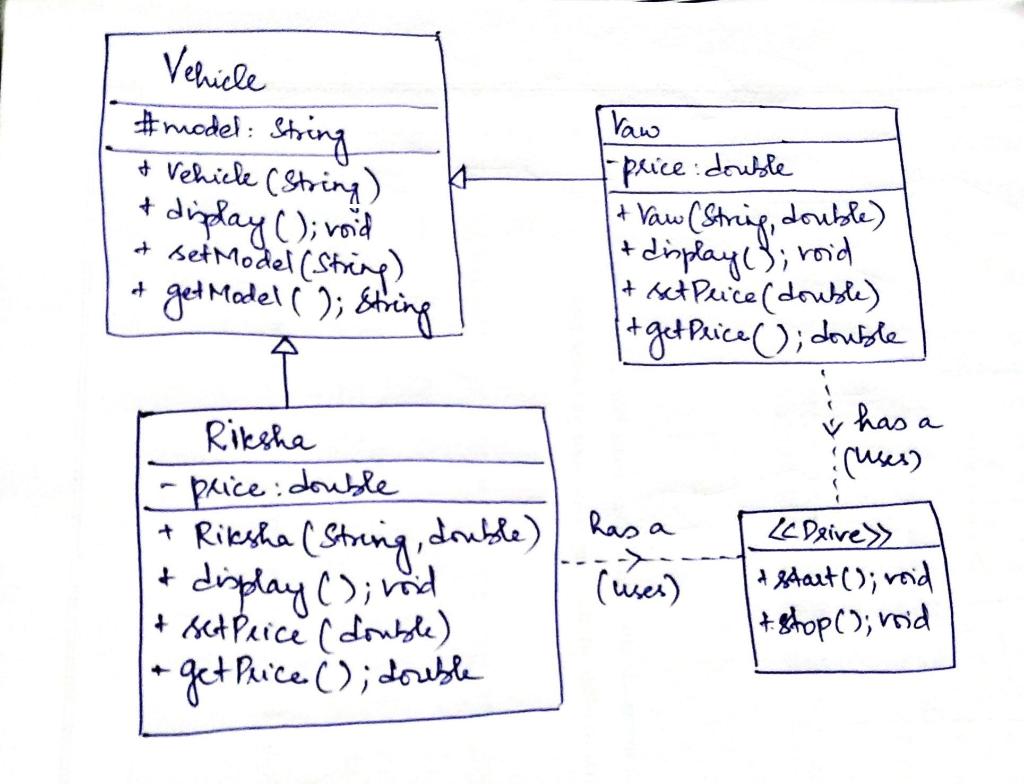 Vehicle
#model: String
+ Vehicle (String)
+ display (); void
+ setModel (String)
+ getModel ( ); String
Vaw
- price: double
+ Vaw (String, double)
+ display(); void
+ setPrice (double)
+ getPrice(); double
has a
(uses)
Riksha
- price: double
+ Riksha (String, double)
+ display (); void
+ setPrice (double)
+ getPrice (); double
has a
(uses)
<<Drive>>
+ start(); void
+ stop(); void